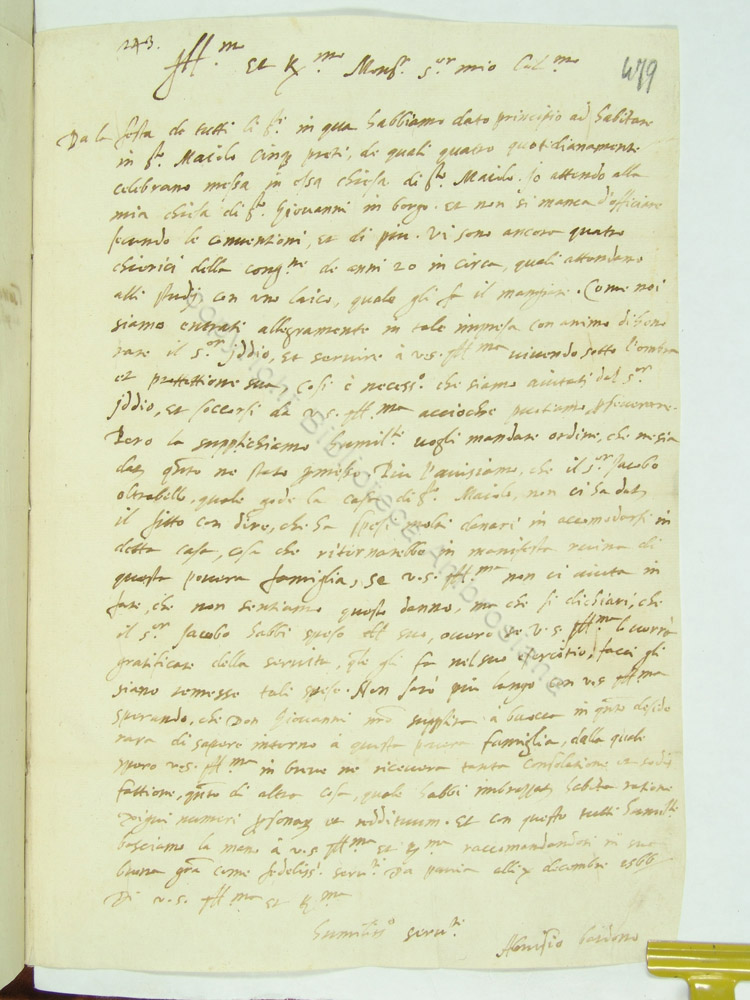 243.
Ill.mo Et R.mo Mons.r s.or mio Col.mo
479
Da la festa de tutti li s.ti in qua habbiamo dato principio ad habitare
in s.to Maiolo cinq preti, de quali quatro quotidianamente
celebrano messa in essa chiesa di s.to Maiolo. Io attendo alla
mia chiesa di s.to Giovanni in borgo. et non si manca d'officiare
secundo le conventioni, et di piu. Vi sono ancora quatro
chierici della cong.ne de anni 20 in circa, quali attendano
alli studij con uno laico, quale gli fa il mangiare. Come noi
siamo entrati allegramente in tale impresa con animo di hono
rare il s.or Iddio, et servire à v.s. Ill.ma vivendo sotto l'ombra
et protettione sua, cosi è necess.o che siamo aiutati dal s.or
Iddio, et soccorsi da v.s. Ill.ma accioche puotiamo perseverare.
Pero la supplichiamo humil.te vogli mandare ordine, che ne sia
dato q.nto ne è stato promesso. Piu l'avissiamo, che il s.or Jacobo
oltrabello, quale gode la casa di s.to Maiolo, non ci ha dato
il fitto con dire, che ha spesi molti danari in accomodarsi in
detta casa, cosa che ritornarebbe in manifesta ruina di
questa povera famiglia, se v.s. Ill.ma non ci aiuta in
fare, che non sentiamo questo danno, ma che si dichiari, che
il s.or Jacobo habbi speso del suo, overo se v.s. Ill.ma lo vorrà
gratificare della servitu, q.le gli fa nel suo esercitio, facci gli
siano remesse tale spese. Non sarò piu longo con v.s. Ill.ma
sperando, che Don Giovanni n.ro supplirà à bocca in q.nto deside
rara di sapere intorno à questa povera famiglia, dalla quale
spero v.s. Ill.ma in breve ne ricevera tanta consolatione et sodis
fattione, q.nto di altra cosa, quale habbi imbrazzato habita ratione
exigui numeri personarum et reddituum. Et con questo tutti humil.te
basciamo la mano à v.s. Ill.ma et R.ma raccomandandosi in sua
buona gra come fedeliss.i serv.ri Da pavia alli x decembre 1566
Di v.s. Ill.ma et R.ma
humiliss.o serv.re
Aluisio